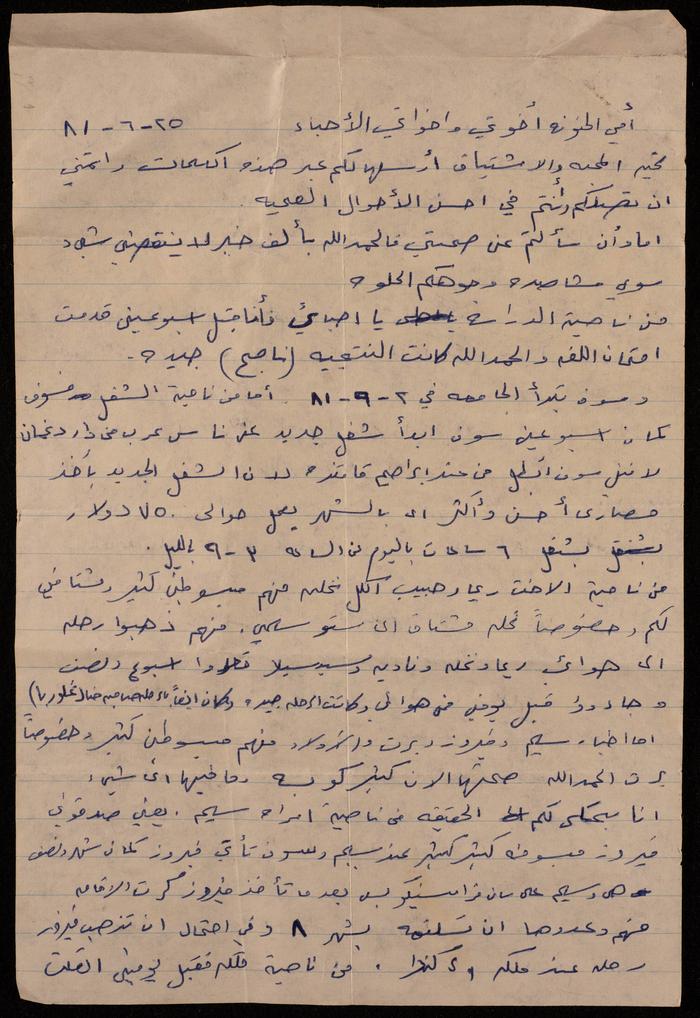 أمي الحنونه أخوتي واخواتي الأحباء ٢٥-٦-٨١
تحية المحبه والاشتياق أرسلها لكم عبر هذه الكلمات واتمنى
ان تصلكم وأنتم في احسن الأحوال الصحيه
اما وأن سألتم عن صحتي فالحمدالله بألف خير لا ينقصني شيء
سوى مشاهدة وجوهكم الحلوه
من ناحية الدراسه يا احبائي فأنا قبل اسبوعين قدمت
امتحان اللغه والحمدالله كانت النتيجه (ناجح) جيده -
وسوف تبدأ الجامعه في ٢-٩-٨١ . أما من ناحية الشغل فسوف
كمان اسبوعين سوف ابدأ شغل جديد عن ناس عرب من دار دغمان
لانني سوف ابطل من عند ابراهيم لان الشغل الجديد بأخذ
مصاري أحسن وأكثر اي بالشهر يعمل حوالي ٧٥٠ دولار
بشتغل ٦ ساعات باليوم من الساعه ٣-٩ بالليل .
من ناحية الاخت ريما وحبيب اكل نخله منهم مبسوطين كثير ومشتاقين
لكم وخصوصاً نخله مشتاق الى ستو سلمى . منهم ذهبوا رحله
الى هوائي ريما ونخله وناديه وسيسيلا اسبوع ونصف
وجاءوا قبل يومين من هوائي وكانت الرحله جيده وكمان ايضاً
اما اخبار سليم وفيروز وبرت والاولاد منهم مبسوطين كثير وخصوصاً
برت الحمدالله صحتها الان كثير كويسه وما فيها اي شيء
انا بحكي لكم الحقيقه من ناحية امراة سليم . يعني صدقوني
فيروز مبسوطه كثير كثير عند سليم وسوف تأتي فيروز كمان شهر ونصف
هي وسليم على سان فرانسيسكو بس بعد ما تأخذ فيروز كرت الاقامه
منهم وعدوها ان تستلمه بشهر ٨ وفي احتمال ان تذهب فيروز
رحله عند ملكه . من ناحية ملكه فقبل يومين اتصلت